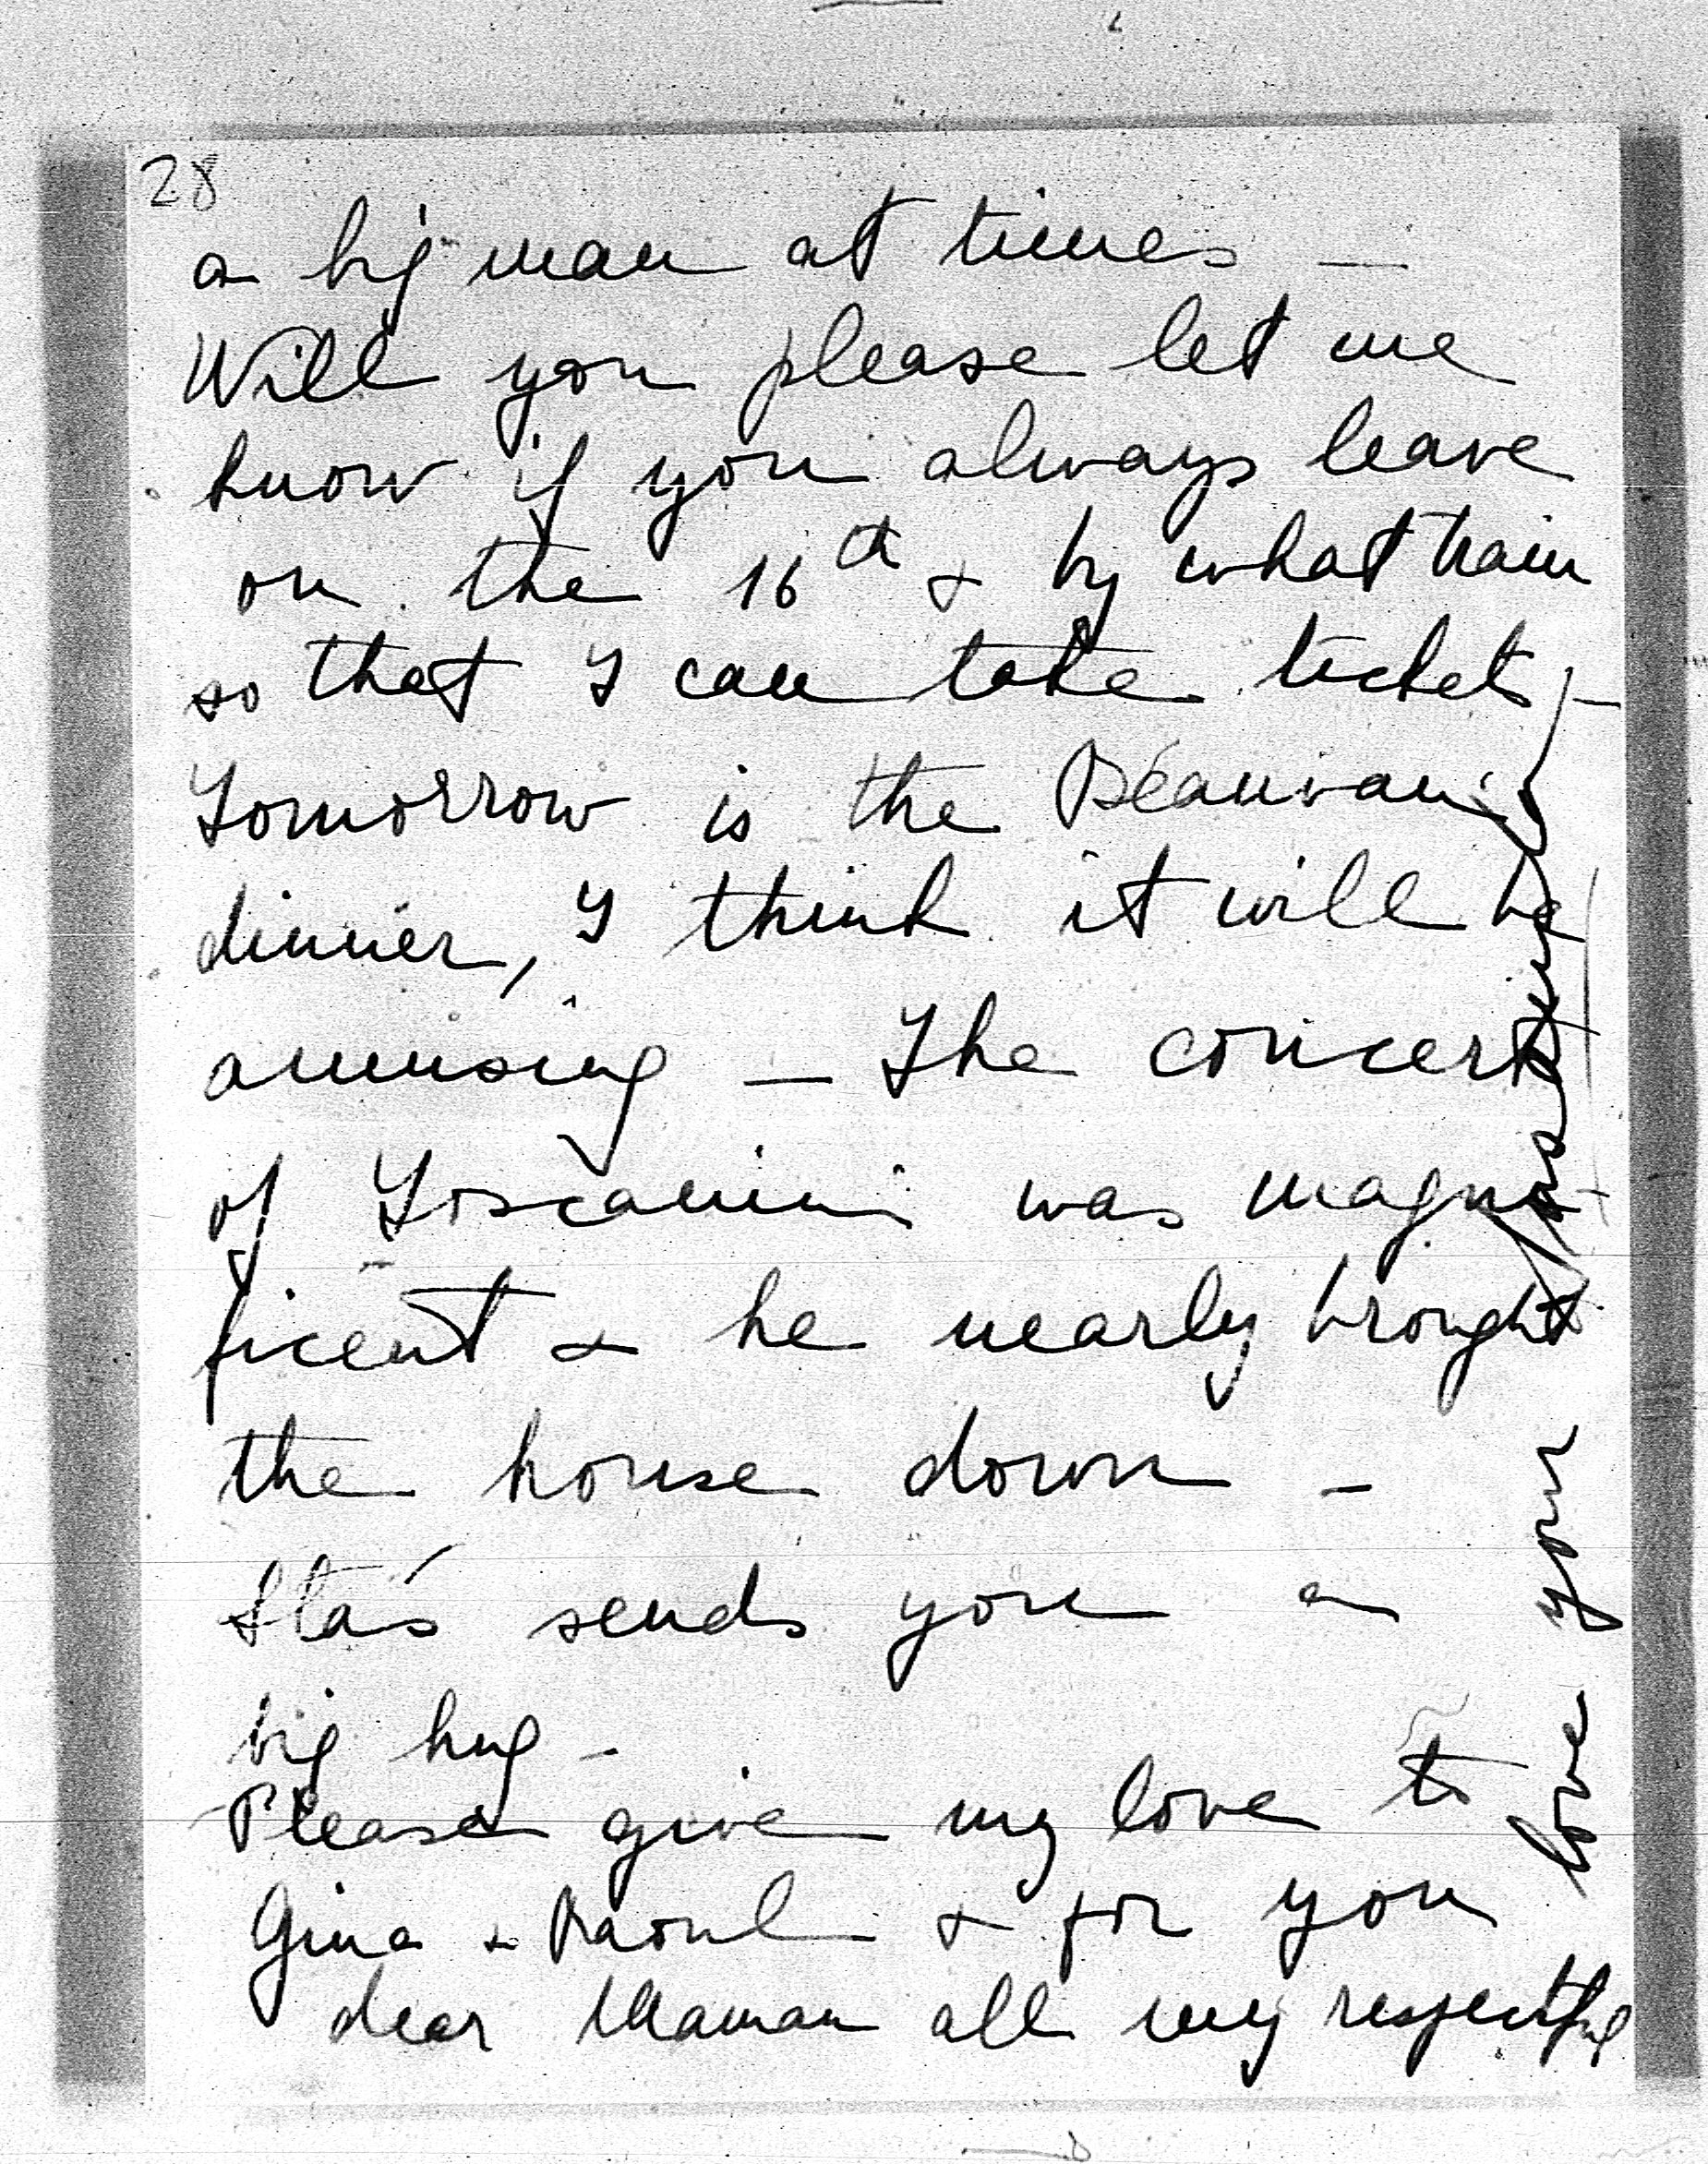 28
a big man at times —
Will you please let me
know if you always leave
on the 16th & by what train
so that I can take tickets —
Tomorrow is the Beauvau
dinner, I think it will be
amusing — The concert
of Toscanini was magni-
ficent & he nearly brought
the house down —
Staś sends you a
big hug —
Please give my love to
Gina & Raoul & for you
dear Maman all my respectful
love your